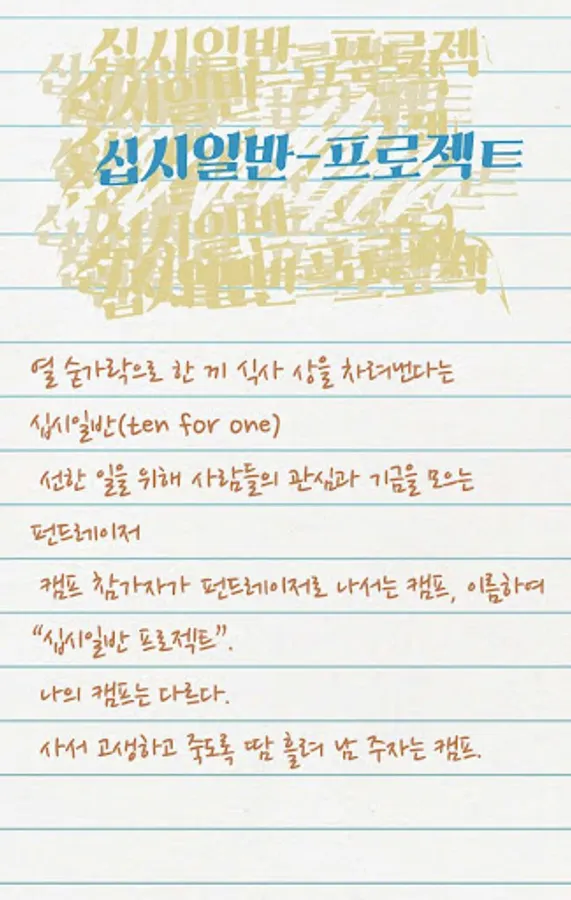 십시일반-프로젝트
열 숟가락으로 한 끼 식사 상을 차려낸다는
십시일반(ten for one)
선한 일을 위해 사람들의 관심과 기금을 모으는
펀드레이저
캠프 참가자가 펀드레이저로 나서는 캠프, 이름하여
“십시일반 프로젝트”.
나의 캠프는 다르다.
사서 고생하고 죽도록 땀 흘려 남 주자는 캠프.